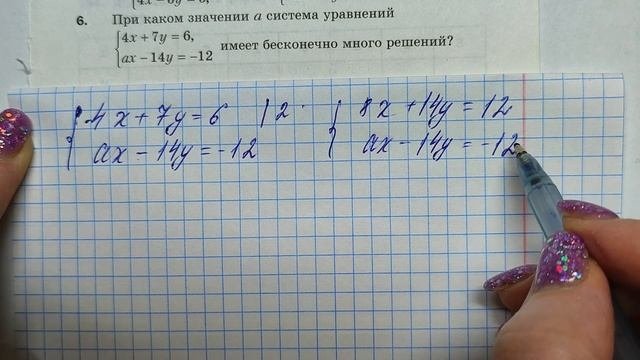 6. При каком значении a система уравнений
4x + 7y = 6,
ax − 14y = −12
имеет бесконечно много решений?
4x + 7y = 6 | 2
ax − 14y = −12
8x + 14y = 12
ax − 14y = −12